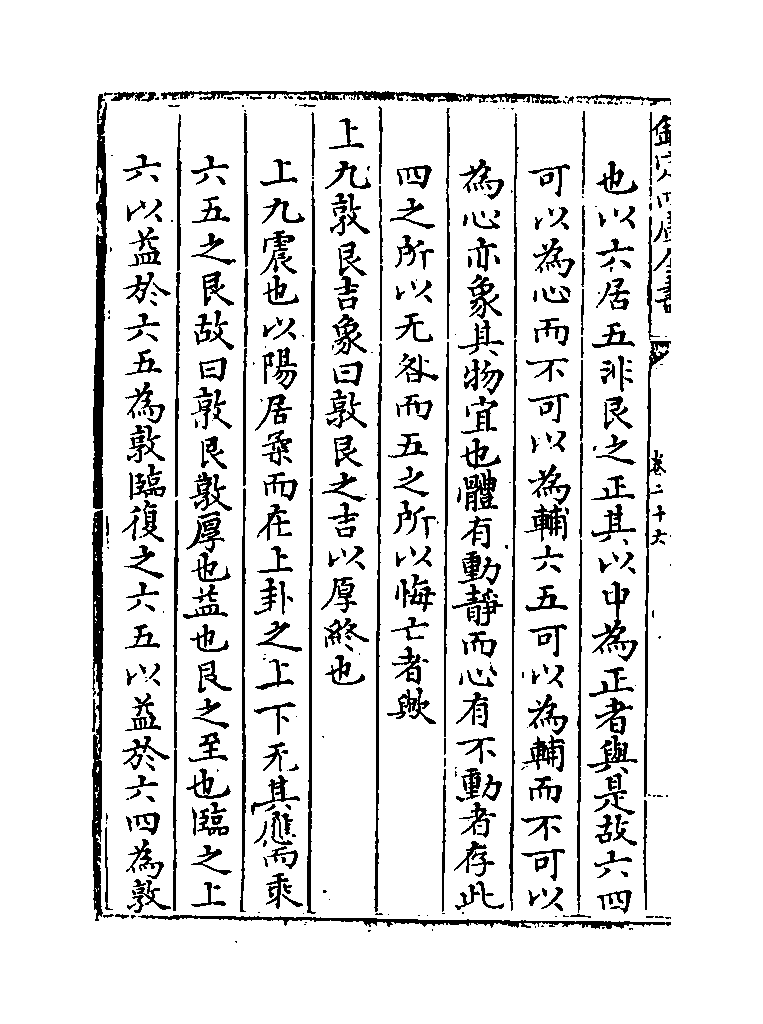 欽定四庫全書
卷二十六
也以六居五非艮之正其以中為正者與是故六四
可以為心而不可以為輔六五可以為輔而不可以
為心亦象其物宜也體有動靜而心有不動者存此
四之所以无咎而五之所以悔亡者歟
上九敦艮吉象曰敦艮之吉以厚終也
上九震也以陽居柔而在上卦之上下无其應而乘
六五之艮故曰敦艮敦厚也益也艮之至也臨之上
六以益於六五為敦臨復之六五以益於六四為敦